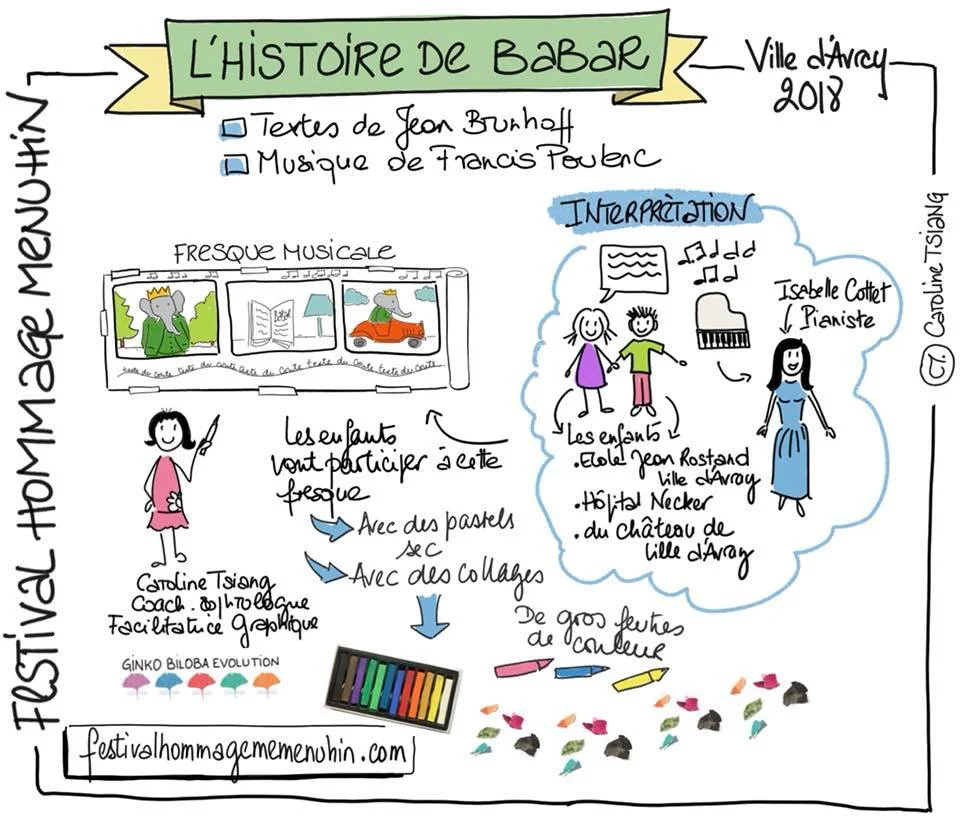 L'HISTOIRE DE BABAR
Ville d'Avray
2018
Textes de Jean Brunhoff
Musique de Francis Poulenc
FESTIVAL HOMMAGE MENUHIN
FRESQUE MUSICALE
Babar
texte du conte texte du conte texte du conte texte du conte texte du conte
INTERPRÈTATION
Isabelle Cottet
Pianiste
Les enfants
. Ecole Jean Rostand
Ville d'Avray
. Hôpital Necker
. du Château de
Ville d'Avray
Les enfants
vont participer à cette
fresque
Avec des pastels
sec
Avec des collages
De gros feutres
de couleur
Caroline Tsiang
Coach. Sophrologue
Facilitatrice Graphique
GINKO BILOBA EVOLUTION
festivalhommagememenuhin.com
CT. Caroline TSIANG